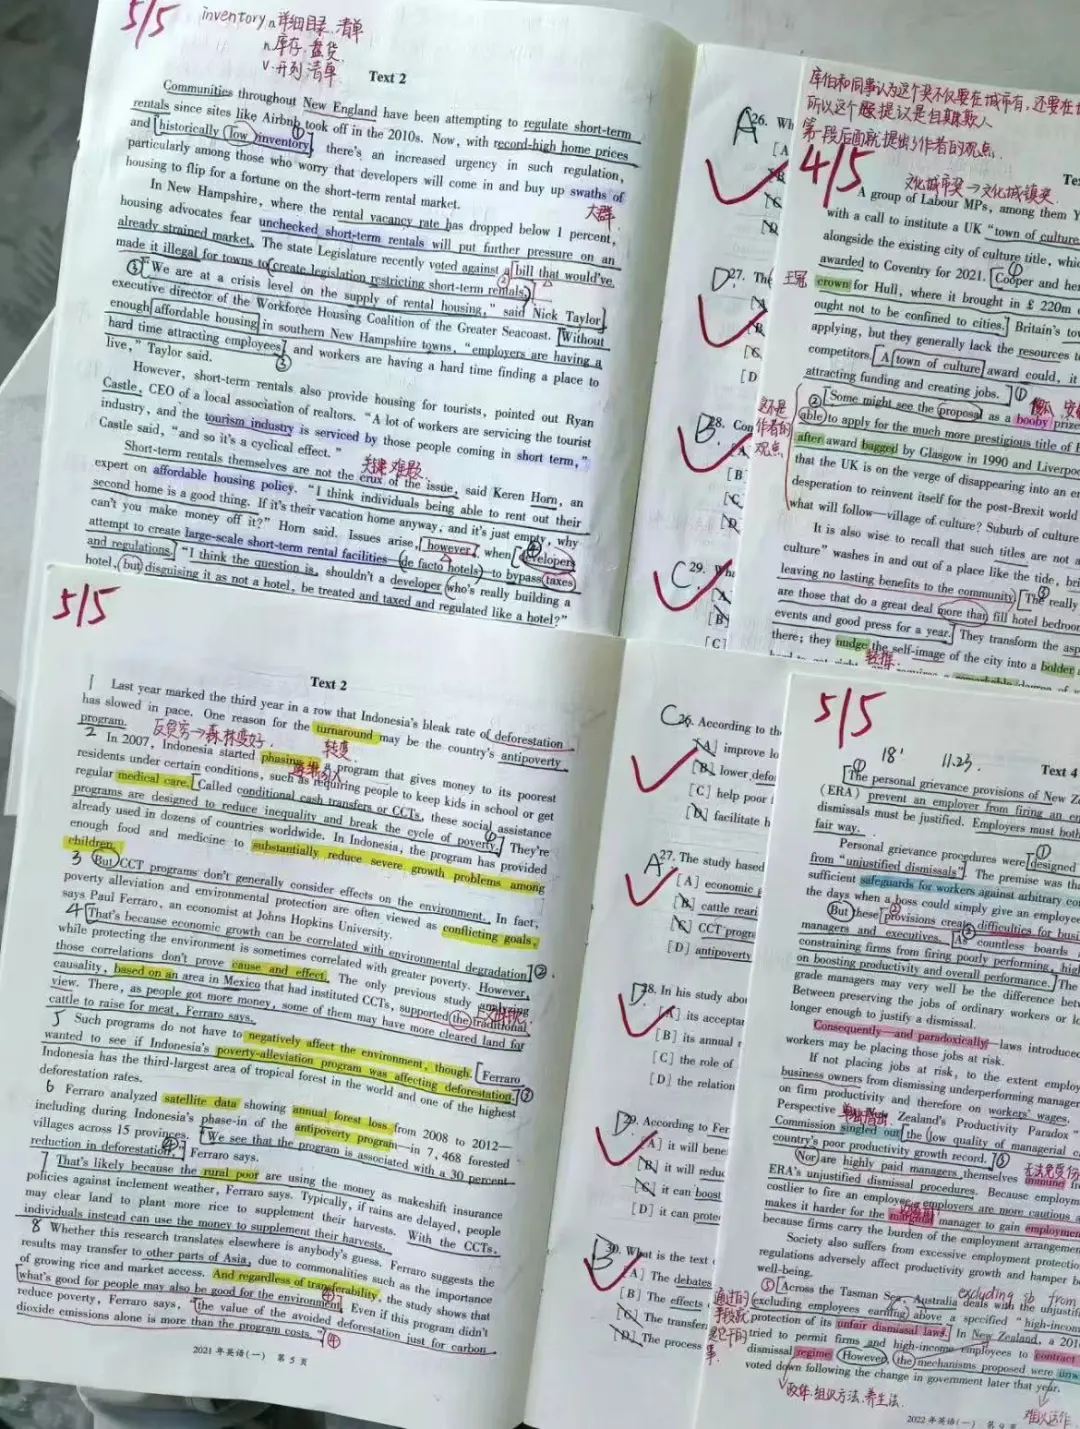 5/5
inventory n.详细目录.清单
n.库存.盘货
v.开列清单
Text 2
Communities throughout New England have been attempting to regulate short-term
rentals since sites like Airbnb took off in the 2010s. Now, with record-high home prices
and historically low inventory, there's an increased urgency in such regulation,
①
particularly among those who worry that developers will come in and buy up swaths of
housing to flip for a fortune on the short-term rental market.
大群
In New Hampshire, where the rental vacancy rate has dropped below 1 percent,
housing advocates fear unchecked short-term rentals will put further pressure on an
already strained market. The state Legislature recently voted against a bill that would've
made it illegal for towns to create legislation restricting short-term rentals.
②
③
"We are at a crisis level on the supply of rental housing," said Nick Taylor,
executive director of the Workforce Housing Coalition of the Greater Seacoast. Without
enough affordable housing in southern New Hampshire towns, "employers are having a
hard time attracting employees and workers are having a hard time finding a place to
③
live," Taylor said.
However, short-term rentals also provide housing for tourists, pointed out Ryan
Castle, CEO of a local association of realtors. "A lot of workers are servicing the tourist
industry, and the tourism industry is serviced by those people coming in short term,"
Castle said, "and so it's a cyclical effect."
关键.难题
Short-term rentals themselves are not the crux of the issue, said Keren Horn, an
expert on affordable housing policy. "I think individuals being able to rent out their
second home is a good thing. If it's their vacation home anyway, and it's just empty, why
can't you make money off it?" Horn said. Issues arise, however, when developers
④
attempt to create large-scale short-term rental facilities—de facto hotels—to bypass taxes
and regulations. "I think the question is, shouldn't a developer who's really building a
hotel, but disguising it as not a hotel, be treated and taxed and regulated like a hotel?"
A
26. Wh
[A
D
27. The
[A
[B
[C
[D
B
28. Con
[A
[B
[C
[D
C
29. Wha
[A
[B]
[C]
库伯和同事认为这个奖不仅要在城市有,还要在
所以这个提议是自欺欺人
第一段后面就提出了作者的观点.
4/5
文化城市奖→文化城镇奖
A group of Labour MPs, among them Y
with a call to institute a UK "town of culture
alongside the existing city of culture title, whic
awarded to Coventry for 2021. Cooper and her
①
王冠
crown for Hull, where it brought in £ 220m
ought not to be confined to cities. Britain's tow
applying, but they generally lack the resources t
competitors. A town of culture award could, it
attracting funding and creating jobs.
①
这是
作者的
观点
② Some might see the proposal as a booby prize
able to apply for the much more prestigious title of
after award bagged by Glasgow in 1990 and Liverpoo
that the UK is on the verge of disappearing into an en
desperation to reinvent itself for the post-Brexit world
what will follow—village of culture? Suburb of culture
It is also wise to recall that such titles are not a
culture" washes in and out of a place like the tide, bri
leaving no lasting benefits to the community. The really
③
are those that do a great deal more than fill hotel bedroom
events and good press for a year. They transform the asp
there; they nudge the self-image of the city into a bolder
轻推.
5/5
Text 2
1 Last year marked the third year in a row that Indonesia's bleak rate of deforestation
has slowed in pace. One reason for the turnaround may be the country's antipoverty
program.
反贫穷→森林变好.
转变
2 In 2007, Indonesia started phasing in a program that gives money to its poorest
residents under certain conditions, such as requiring people to keep kids in school or get
regular medical care. Called conditional cash transfers or CCTs, these social assistance
programs are designed to reduce inequality and break the cycle of poverty. They're
①
already used in dozens of countries worldwide. In Indonesia, the program has provided
enough food and medicine to substantially reduce severe growth problems among
children.
3 But CCT programs don't generally consider effects on the environment. In fact,
poverty alleviation and environmental protection are often viewed as conflicting goals,
says Paul Ferraro, an economist at Johns Hopkins University.
4 That's because economic growth can be correlated with environmental degradation,
②
while protecting the environment is sometimes correlated with greater poverty. However,
those correlations don't prove cause and effect. The only previous study analyzing
causality, based on an area in Mexico that had instituted CCTs, supported the traditional
view. There, as people got more money, some of them may have more cleared land for
cattle to raise for meat, Ferraro says.
5 Such programs do not have to negatively affect the environment, though. Ferraro
wanted to see if Indonesia's poverty-alleviation program was affecting deforestation.
③
Indonesia has the third-largest area of tropical forest in the world and one of the highest
deforestation rates.
6 Ferraro analyzed satellite data showing annual forest loss from 2008 to 2012—
including during Indonesia's phase-in of the antipoverty program—in 7,468 forested
villages across 15 provinces. "We see that the program is associated with a 30 percent
reduction in deforestation," Ferraro says.
7 That's likely because the rural poor are using the money as makeshift insurance
policies against inclement weather, Ferraro says. Typically, if rains are delayed, people
may clear land to plant more rice to supplement their harvests. With the CCTs,
individuals instead can use the money to supplement their harvests.
8 Whether this research translates elsewhere is anybody's guess. Ferraro suggests the
results may transfer to other parts of Asia, due to commonalities such as the importance
of growing rice and market access. And regardless of transferability, the study shows that
what's good for people may also be good for the environment. Even if this program didn't
④
reduce poverty, Ferraro says, "the value of the avoided deforestation just for carbon
dioxide emissions alone is more than the program costs."
④
2021年英语(一) 第5页
C
26. According to th
[A] improve lo
[B] lower defo
[C] help poor f
[D] facilitate h
A
27. The study based
[A] economic g
[B] cattle reari
[C] CCT progr
[D] antipoverty
D
28. In his study abou
[A] its acceptan
[B] its annual r
[C] the role of
[D] the relation
D
29. According to Fer
[A] it will bene
[B] it will redu
[C] it can boost
[D] it can prote
B
30. What is the text
[A] The debates
[B] The effects
[C] The transfer
[D] The process
5/5
18'
11.23.
Text 4
① The personal grievance provisions of New Ze
(ERA) prevent an employer from firing an em
dismissals must be justified. Employers must both
fair way.
Personal grievance procedures were designed
①
from "unjustified dismissals". The premise was tha
sufficient safeguards for workers against arbitrary con
the days when a boss could simply give an employee
But these provisions create difficulties for busi
②
managers and executives. As countless boards
constraining firms from firing poorly performing, high
on boosting productivity and overall performance. The
grade managers may very well be the difference betw
Between preserving the jobs of ordinary workers or lo
longer enough to justify a dismissal.
Consequently—and paradoxically—laws introduced
workers may be placing those jobs at risk.
If not placing jobs at risk, to the extent employ
business owners from dismissing underperforming manage
on firm productivity and therefore on workers' wages.
Perspective on New Zealand's Productivity Paradox"
Commission singled out the low quality of managerial c
country's poor productivity growth record.
③
Nor are highly paid managers themselves immune fr
ERA's unjustified dismissal procedures. Because employm
costlier to fire an employee, employers are more cautious a
makes it harder for the marginal manager to gain employmen
because firms carry the burden of the employment arrangemen
Society also suffers from excessive employment protectio
regulations adversely affect productivity growth and hamper b
well-being.
excluding sb from
⑤ Across the Tasman Sea, Australia deals with the unjustifi
excluding employees earning above a specified "high-incom
protection of its unfair dismissal laws. In New Zealand, a 201
tried to permit firms and high-income employees to contract
dismissal regime. However, the mechanisms proposed were unw
voted down following the change in government later that year.
政体.组织方法.养生法.
难以运作
2022年英语(一) 第9页